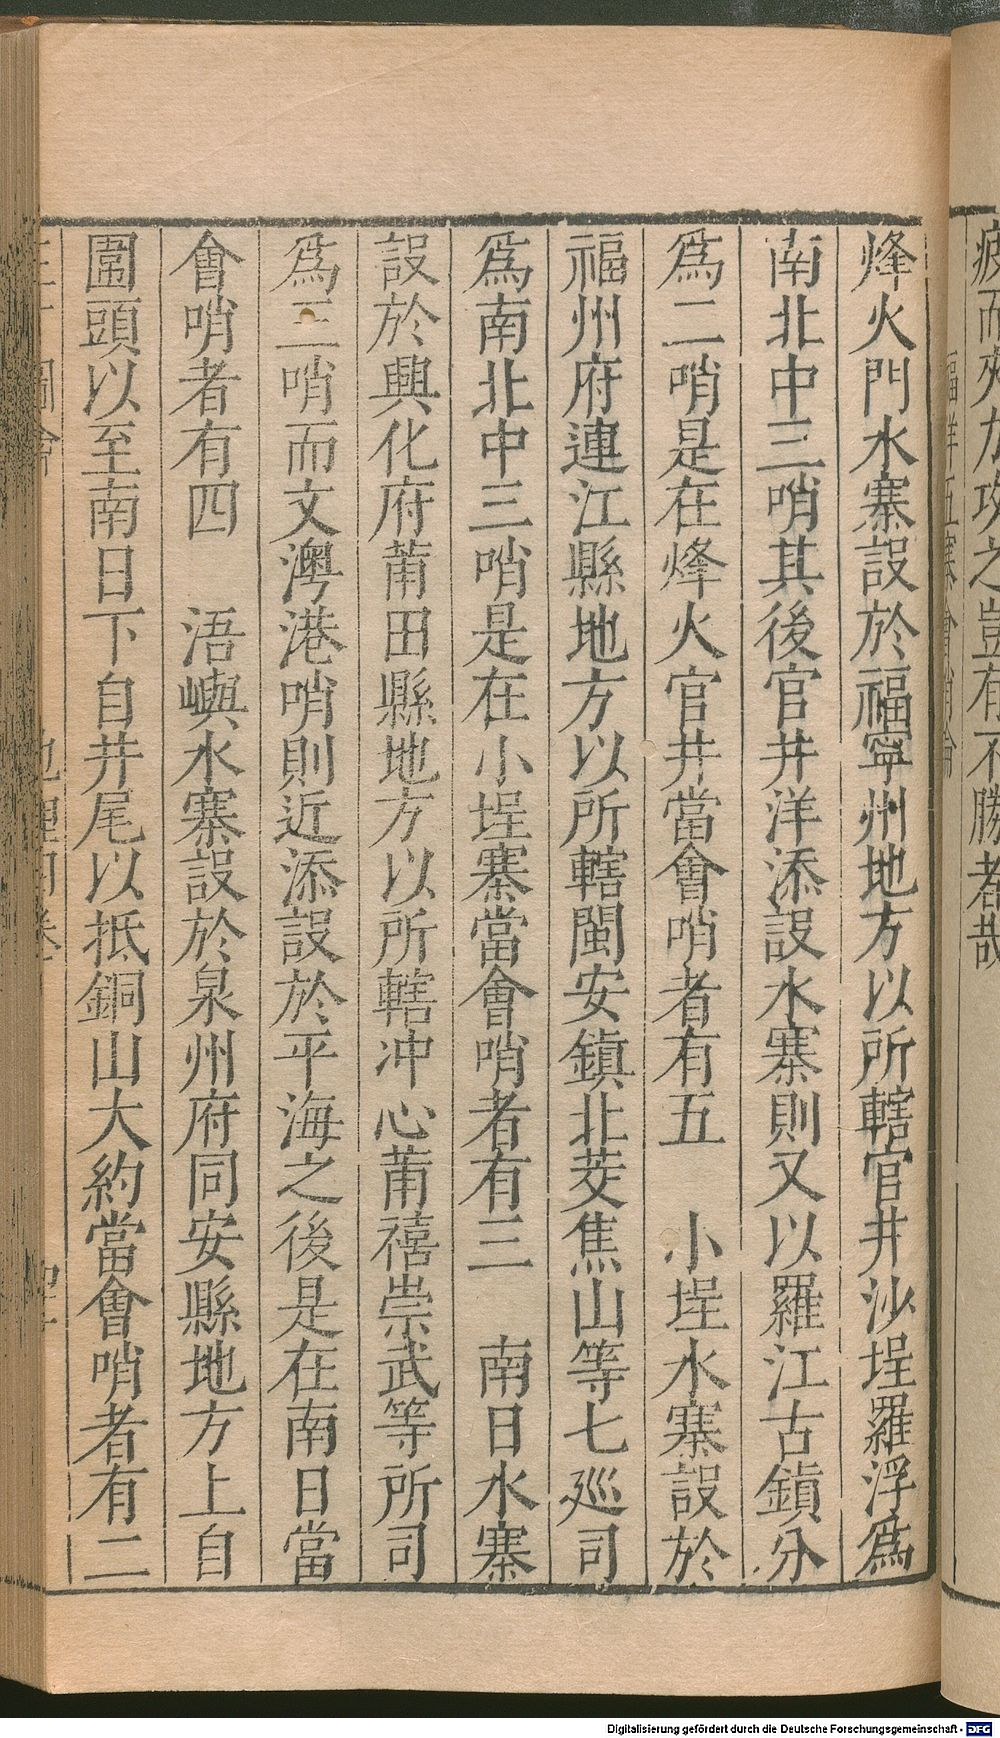 疲而夾力攻之豈有不勝者哉
福洋五寨會哨論
烽火門水寨設於福寧州地方以所轄官井沙埕羅浮爲
南北中三哨其後官井洋添設水寨則又以羅江古鎮分
爲二哨是在烽火官井當會哨者有五　小埕水寨設於
福州府連江縣地方以所轄閩安鎮北茭焦山等七巡司
爲南北中三哨是在小埕寨當會哨者有三　南日水寨
設於興化府莆田縣地方以所轄冲心莆禧崇武等所司
爲三哨而文澳港哨則近添設於平海之後是在南日當
會哨者有四　浯嶼水寨設於泉州府同安縣地方上自
圍頭以至南日下自井尾以抵銅山大約當會哨者有二
圖會　地理　卷
Digitalisierung gefördert durch die Deutsche Forschungsgemeinschaft - DFG